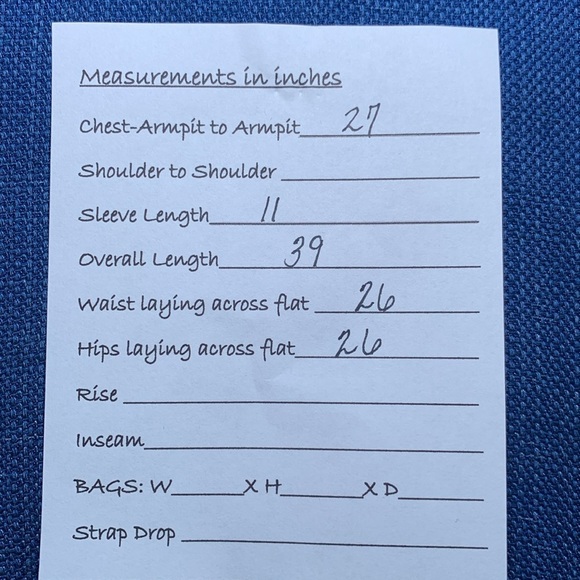 Measurements in inches
Chest-Armpit to Armpit 27
Shoulder to Shoulder
Sleeve Length 11
Overall Length 39
Waist laying across flat 26
Hips laying across flat 26
Rise
Inseam
BAGS: W______X H______X D______
Strap Drop